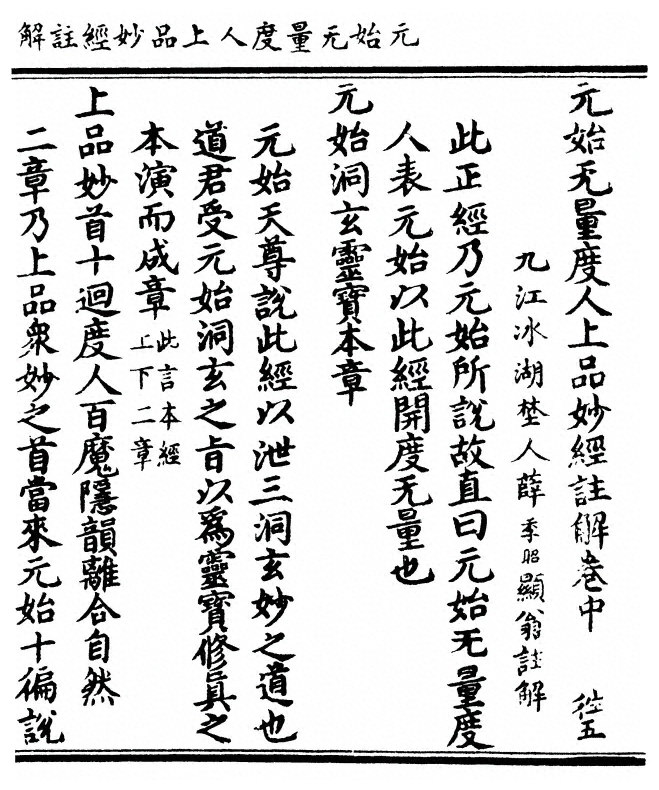 元始无量度人上品妙經註解
元始无量度人上品妙經註解卷中 徃五
九江冰湖埜人薛季昭顯翁註解
此正經乃元始所說故直曰元始无量度
人表元始以此經開度无量也
元始洞玄靈寶本章
元始天尊說此經以泄三洞玄妙之道也
道君受元始洞玄之旨以爲靈寶修真之
本演而成章此言本經上下二章
上品妙首十迴度人百魔隱韻離合自然
二章乃上品衆妙之首當來元始十徧說